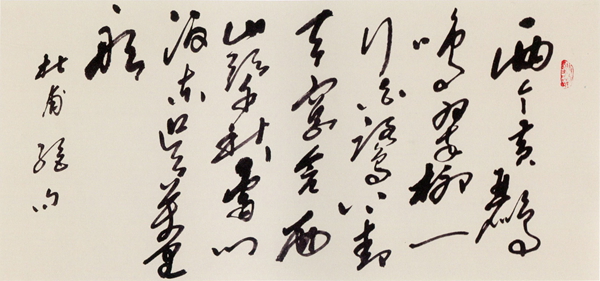 兩个黄鸝
鳴翠柳一
行白鷺上青
天窗含西
嶺千秋雪门
泊东吴萬里
船
杜甫绝句